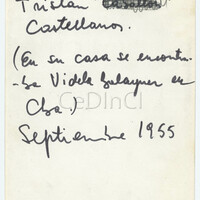 Tristan
Castellanos.
(En su casa se encontra-
-ba Videla Balaguer en
Cba.)
CeDInCI
Septiembre 1955